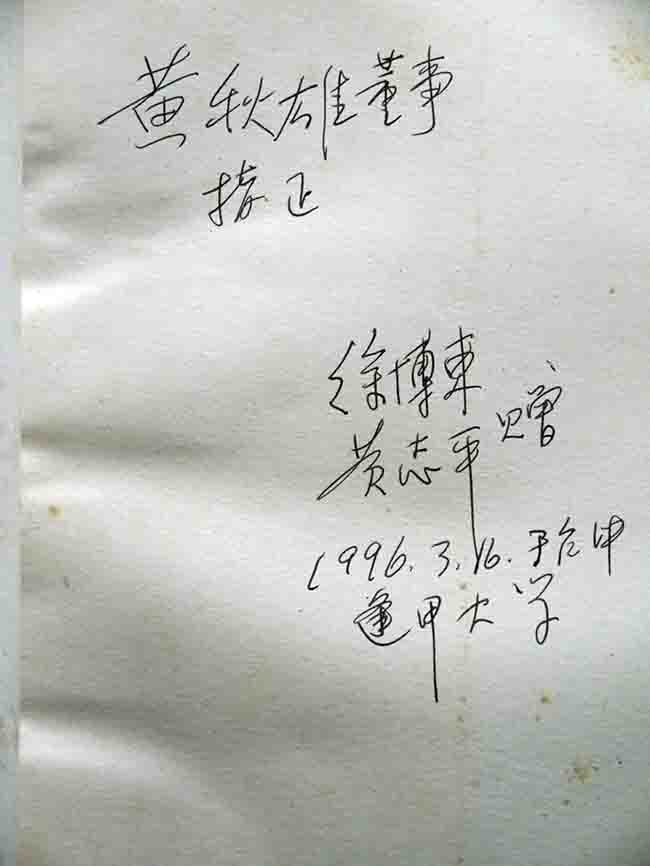 黄秋雄董事
指正
徐博東
黄志平 赠
1996.3.16.于台中
逢甲大学